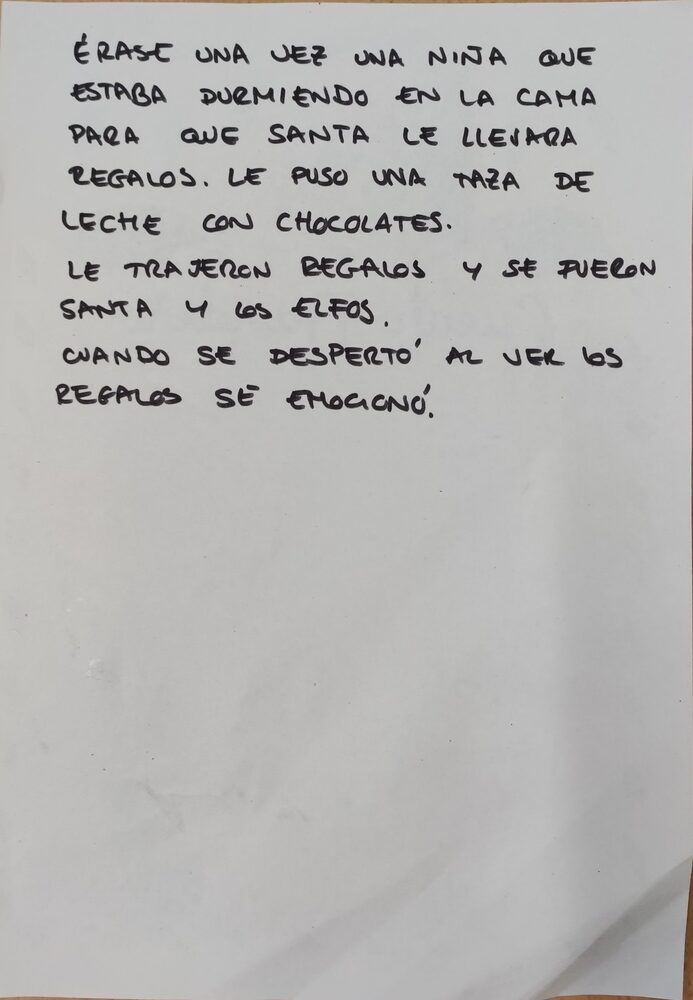 ÉRASE UNA VEZ UNA NIÑA QUE
ESTABA DURMIENDO EN LA CAMA
PARA QUE SANTA LE LLEVARA
REGALOS. LE PUSO UNA TAZA DE
LECHE CON CHOCOLATES.
LE TRAJERON REGALOS Y SE FUERON
SANTA Y LOS ELFOS.
CUANDO SE DESPERTÓ AL VER LOS
REGALOS SE EMOCIONÓ.